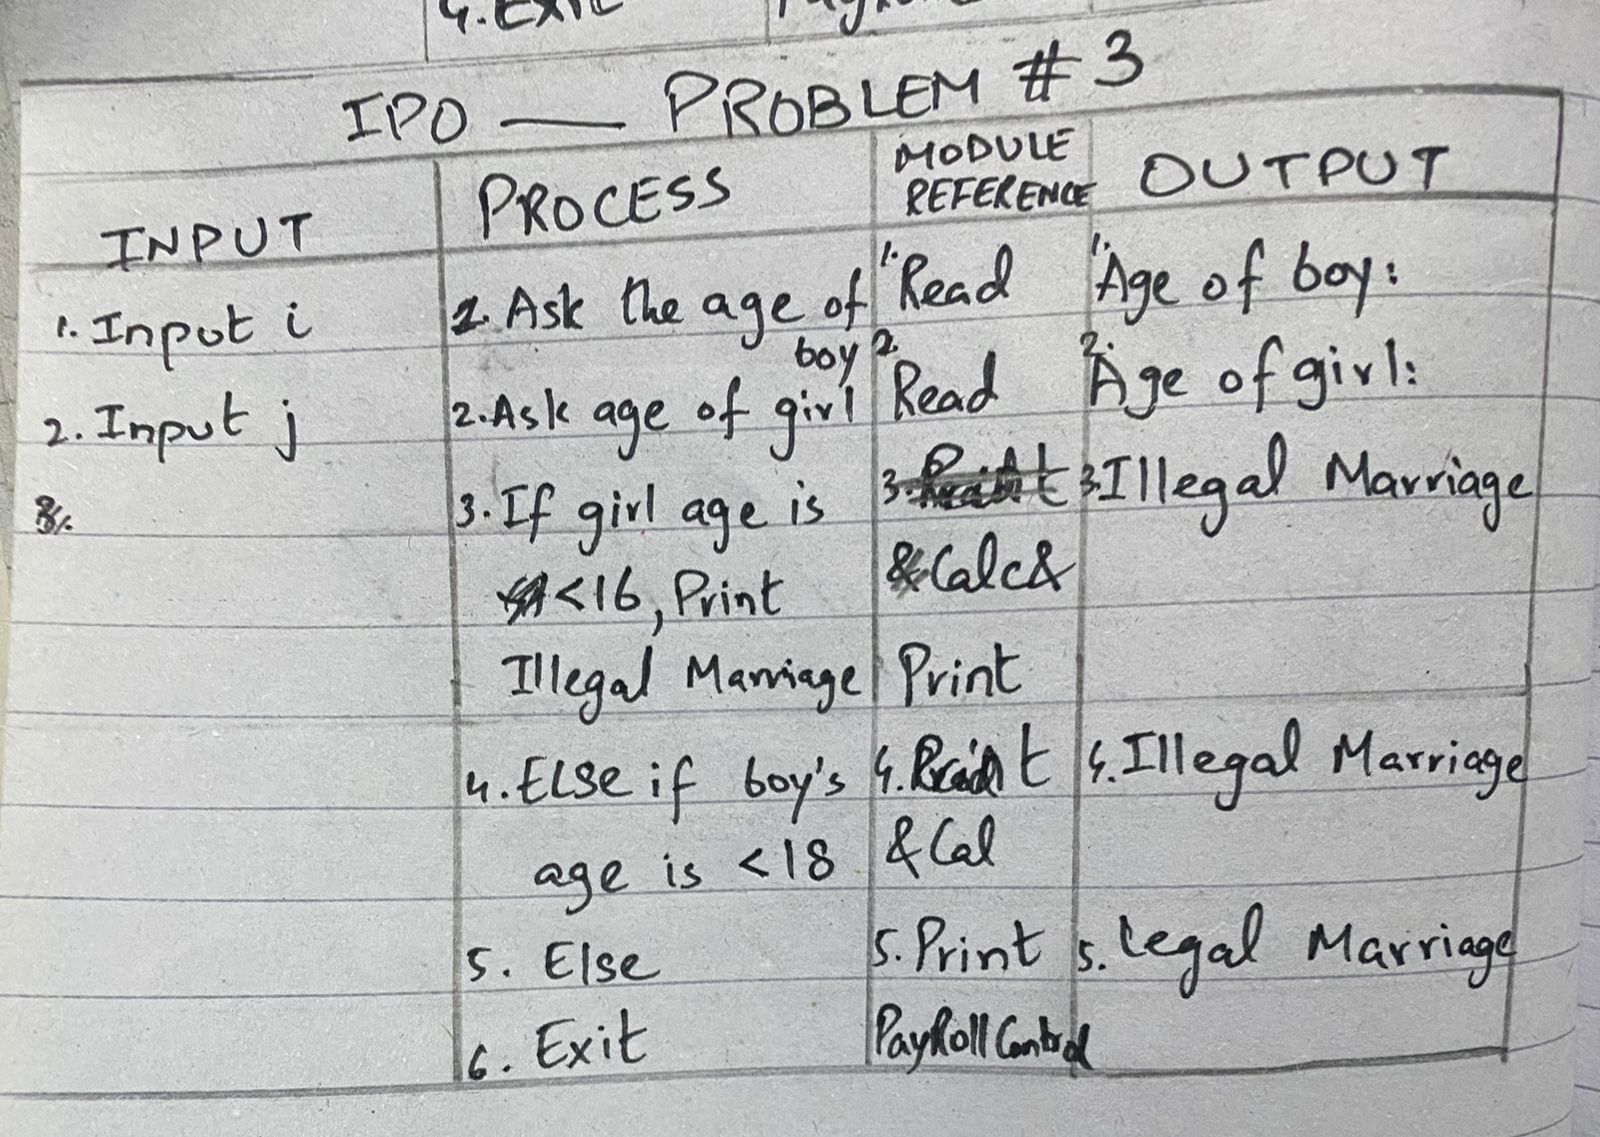 4. Exit
IPO — PROBLEM # 3
INPUT
PROCESS
MODULE
REFERENCE
OUTPUT
1. Input i
1. Ask the age of
boy
1. Read
1. Age of boy:
2. Input j
2. Ask age of girl
2. Read
2. Age of girl:
3. If girl age is
<16, Print
Illegal Marriage
3.
& Calc &
Print
3. Illegal Marriage
4. Else if boy's
age is <18
4. Print
& Cal
4. Illegal Marriage
5. Else
5. Print
5. Legal Marriage
6. Exit
PayRoll Control